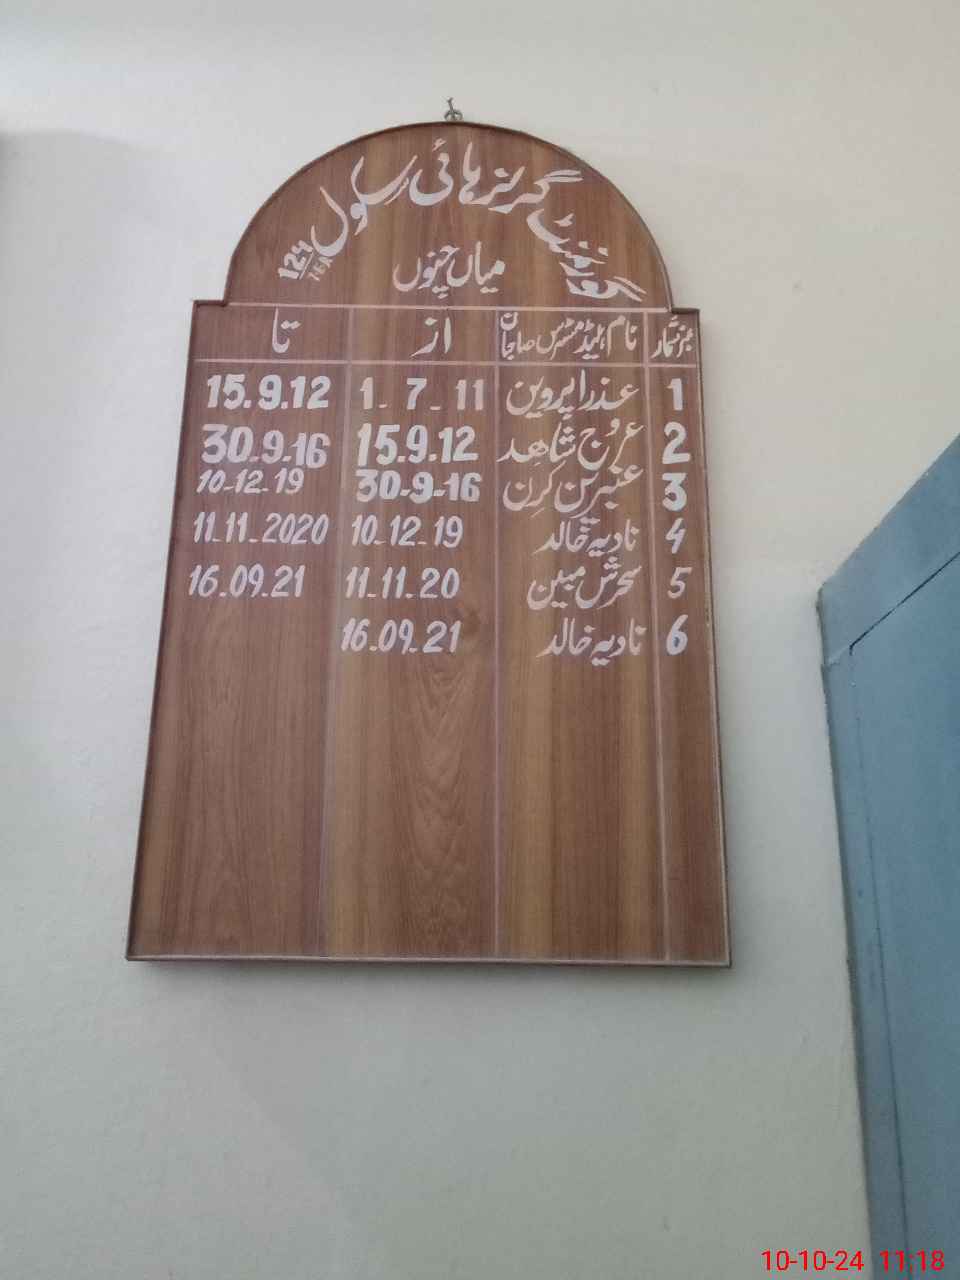 گورنمنٹ گرلز ہائی سکول 124/15.L
میاں چنوں
نمبر شمار نام ہیڈ مسٹرس صاحبان از تا
1 عذرا پروین 1-7-11 15.9.12
2 عروج شاھد 15.9.12 30-9-16
3 عنبرین کرن 30-9-16 10-12-19
4 نادیہ خالد 10-12-19 11-11-2020
5 سحرش مبین 11-11-20 16.09.21
6 نادیہ خالد 16.09.21
10-10-24 11:18